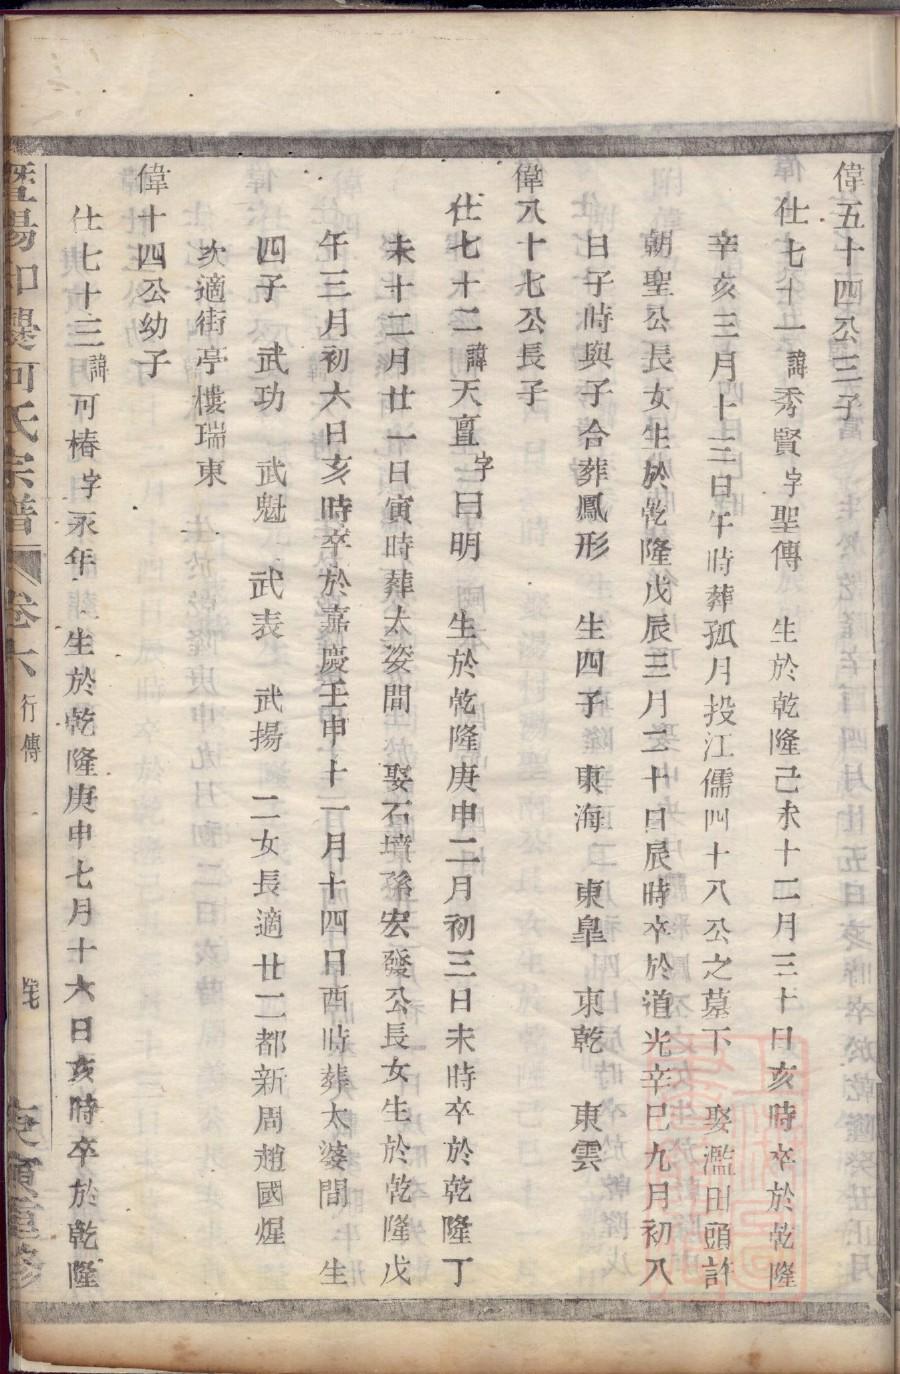 偉五十四公三子
仕七十一諱秀賢字聖傳 生於乾隆己未十二月三十日亥時卒於乾隆
辛亥三月十三日午時葬孤月投江儒四十八公之墓下 娶濫田頭許
朝聖公長女生於乾隆戊辰三月二十日辰時卒於道光辛巳九月初八
日子時與子合葬鳳形 生四子 東海 東皐 東乾 東雲
偉八十七公長子
仕七十二諱天亶字曰明 生於乾隆庚申二月初三日未時卒於乾隆丁
未十二月廿一日寅時葬太婆間 娶石墳孫宏發公長女生於乾隆戊
午三月初六日亥時卒於嘉慶壬申十一月十四日酉時葬太婆間 生
四子 武功 武魁 武表 武揚 二女長適廿二都新周趙國煋
次適街亭樓瑞東
偉十四公幼子
仕七十三諱可椿字永年 生於乾隆庚申七月十六日亥時卒於乾隆
暨陽 何氏宗譜 卷六 行傳 一 重修